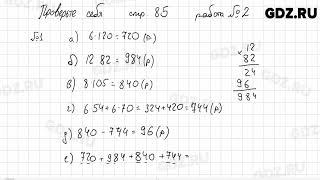 GDZ.RU
Проверьте себя стр. 85 работа №2
№1 а) 6·120=720 (р)
б) 12·82 = 984 (р)
в) 8·105 = 840 (р)
г) 6·54+6·70 = 324+420=744 (р)
д) 840 - 744 = 96 (р)
е) 720 + 984 + 840 + 744 =
× 12
82
24
96
984